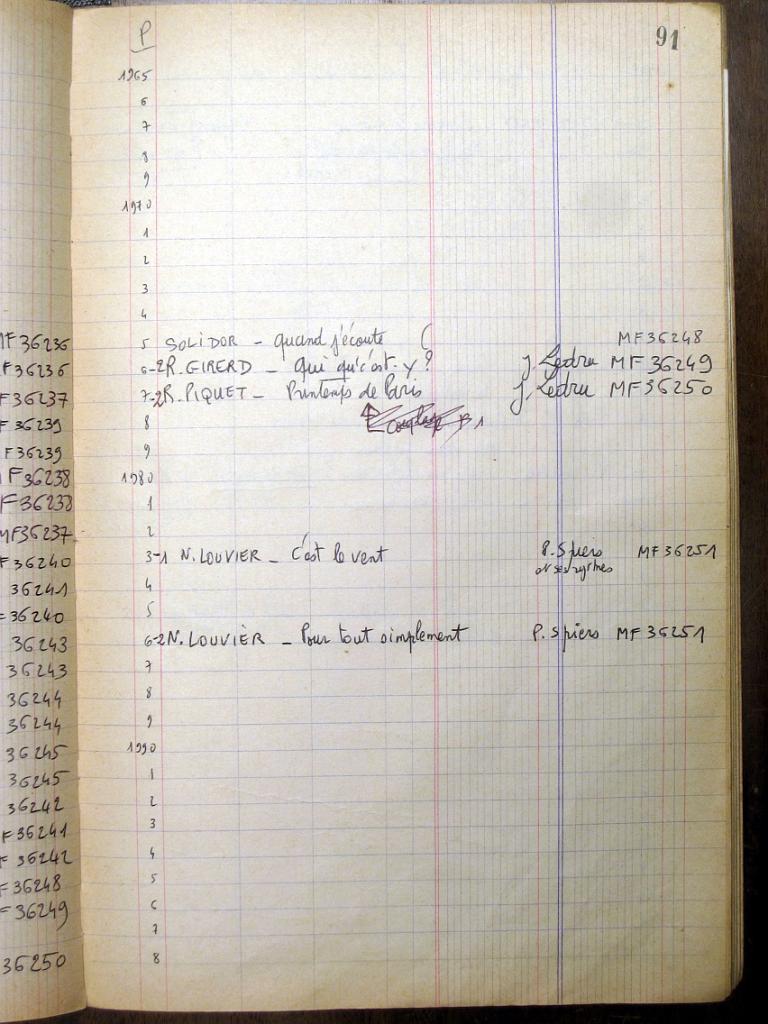 P
91
1965
6
7
8
9
1970
1
2
3
4
MF36236
5 SOLIDOR - quand j'écoute ( MF36248
F36236
6-2R. GIRERD - Qui qu'c'est-y? J. Ledru MF 36249
F36237
7-2R. PIQUET - Printemps de Paris J. Ledru MF 36250
F 36239
8
F36239
9
F36238
1980
F36238
1
MF36237
2
F 36240
3-1 N. LOUVIER - C'est le vent P. Spiers MF 36251
et ses rythmes
36241
4
36240
5
36243
6-2N. LOUVIER - Pour tout simplement P. Spiers MF 36251
36243
7
36244
8
36244
9
36245
1990
36245
1
36242
2
F36241
3
F 36242
4
F 36248
5
36249
6
7
36250
8